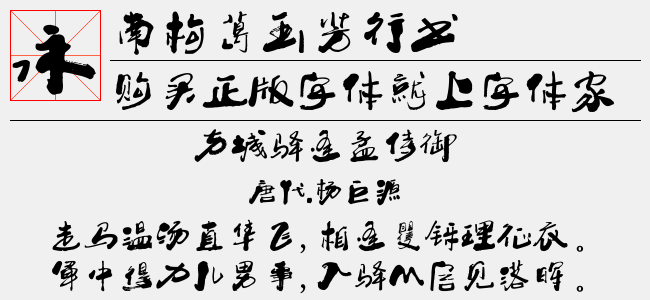 永
南梅画行书
购买正版字体就上字体家
方城驿逢孟侍御
唐代.杨巨源
走马温汤直隼飞，相逢矍铄理征衣。
军中得力儿男事，入驿从容见落晖。